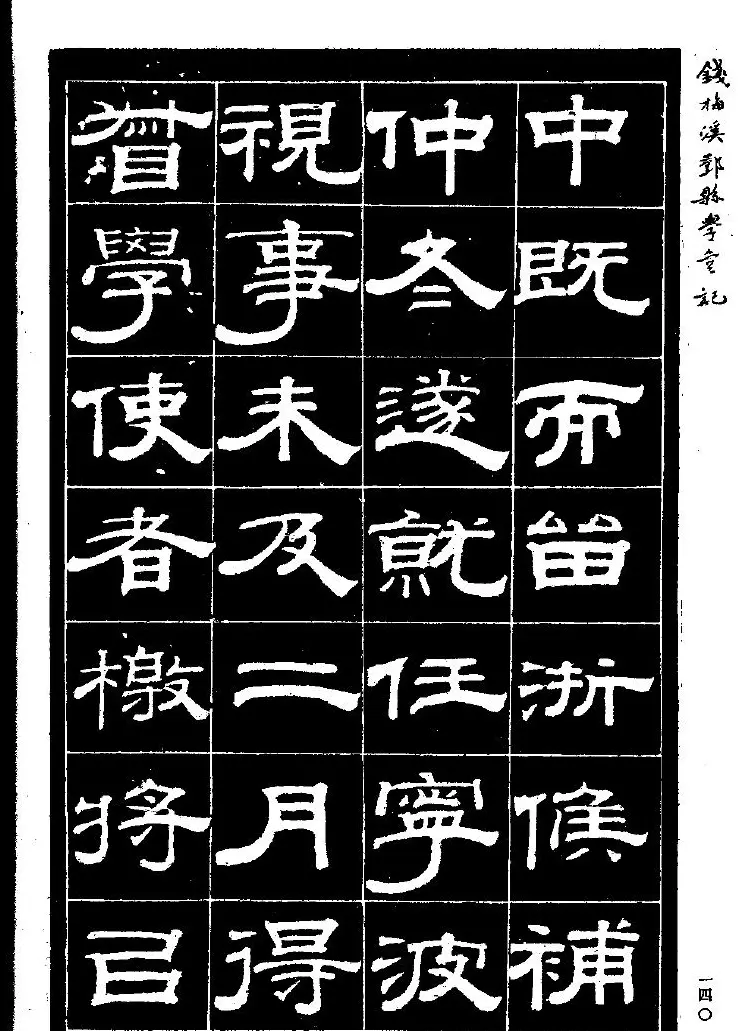 錢梅溪鄞縣學堂記
中既而留浙候補
仲冬遂就任寧波
視事未及二月得
督學使者檄將以
一四〇